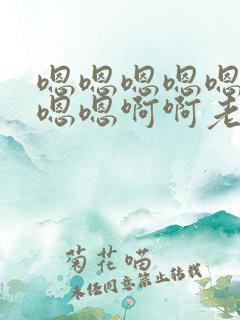 嗯嗯嗯嗯嗯
嗯嗯啊啊老
菊花喵
未经同意禁止转载